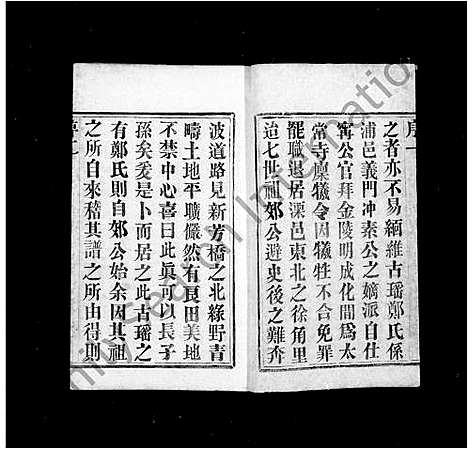 之者亦不易緬維古瑶鄭氏係
浦邑義門冲素公之嫡派自仕
公官拜金陵明成化間為太
常寺廩犠令因犠牲不合免罪
罷職退居溧邑東北之徐角里
迨七世祖郊公避史後之難奔
序一
波道路見新芳橋之北綠野青
疇土地平曠儼然有良田美地
不禁中心喜曰此眞可以長子
孫矣爰是卜而居之此古瑶之
有鄭氏則自郊公始余因其祖
之所自來稽其譜之所由得則